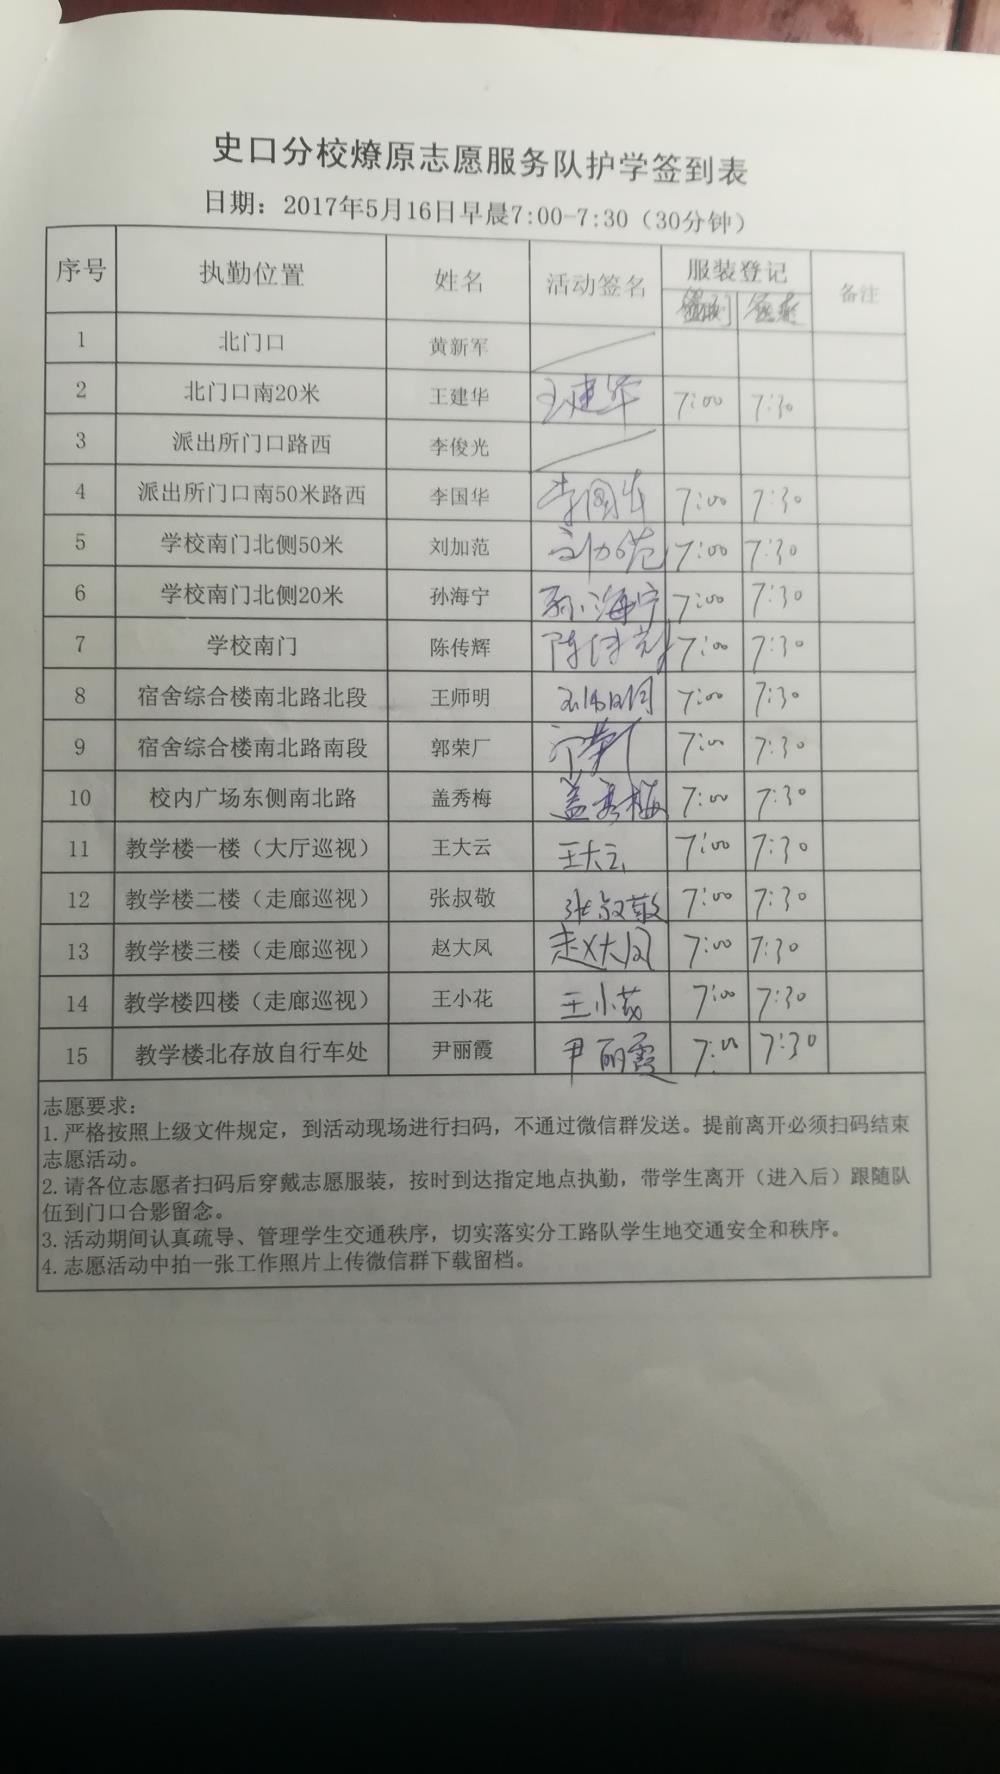 史口分校燎原志愿服务队护学签到表
日期：2017年5月16日早晨7:00-7:30（30分钟）
序号 执勤位置 姓名 活动签名 服装登记 备注
1 北门口 黄新军
2 北门口南20米 王建华 王建华 7:00 7:30
3 派出所门口路西 李俊光
4 派出所门口南50米路西 李国华 李国华 7:00 7:30
5 学校南门北侧50米 刘加范 刘加范 7:00 7:30
6 学校南门北侧20米 孙海宁 孙海宁 7:00 7:30
7 学校南门 陈传辉 陈传辉 7:00 7:30
8 宿舍综合楼南北路北段 王师明 王师明 7:00 7:30
9 宿舍综合楼南北路南段 郭荣厂 郭荣厂 7:00 7:30
10 校内广场东侧南北路 盖秀梅 盖秀梅 7:00 7:30
11 教学楼一楼（大厅巡视） 王大云 王大云 7:00 7:30
12 教学楼二楼（走廊巡视） 张叔敬 张叔敬 7:00 7:30
13 教学楼三楼（走廊巡视） 赵大凤 赵大凤 7:00 7:30
14 教学楼四楼（走廊巡视） 王小花 王小花 7:00 7:30
15 教学楼北存放自行车处 尹丽霞 尹丽霞 7:00 7:30
志愿要求：
1.严格按照上级文件规定，到活动现场进行扫码，不通过微信群发送。提前离开必须扫码结束
志愿活动。
2.请各位志愿者扫码后穿戴志愿服装，按时到达指定地点执勤，带学生离开（进入后）跟随队
伍到门口合影留念。
3.活动期间认真疏导、管理学生交通秩序，切实落实分工路队学生地交通安全和秩序。
4.志愿活动中拍一张工作照片上传微信群下载留档。